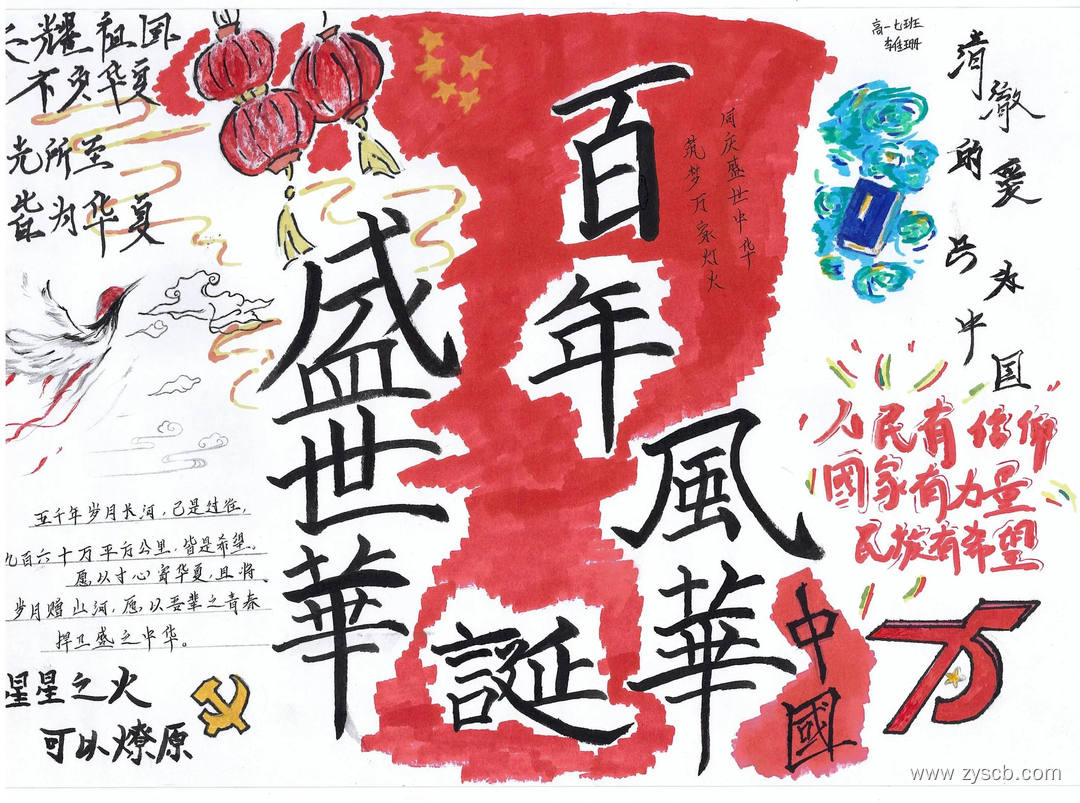 耀祖国
不负华夏
光所至
皆为华夏
高一七班
百年風華
盛世華誕
中國
同庆盛世中华
筑梦万家灯火
清澈的爱
只为中国
人民有信仰
國家有力量
民族有希望
五千年岁月长河,已是过往,
九百六十万平方公里,皆是希望。
愿以寸心寄华夏,且将
岁月赠山河,愿以吾辈之青春
捍卫盛之中华。
星星之火
可以燎原
75
www.zyscb.com